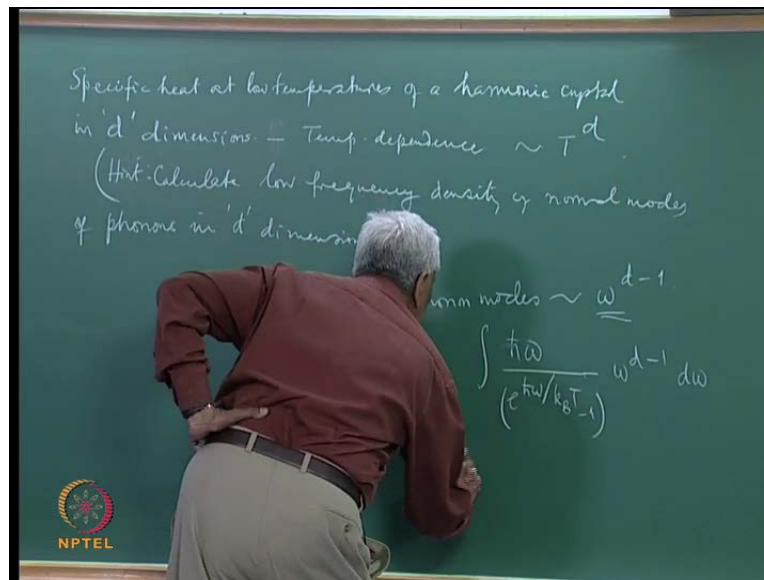 Specific heat at low temperatures of a harmonic crystal
in 'd' dimensions. – Temp. dependence ~ T^d
(Hint: Calculate low frequency density of normal modes
of phonons in 'd' dimension
modes ~ ω^{d-1}.
∫ ħω / (e^{ħω/k_BT} -1) ω^{d-1} dω
NPTEL